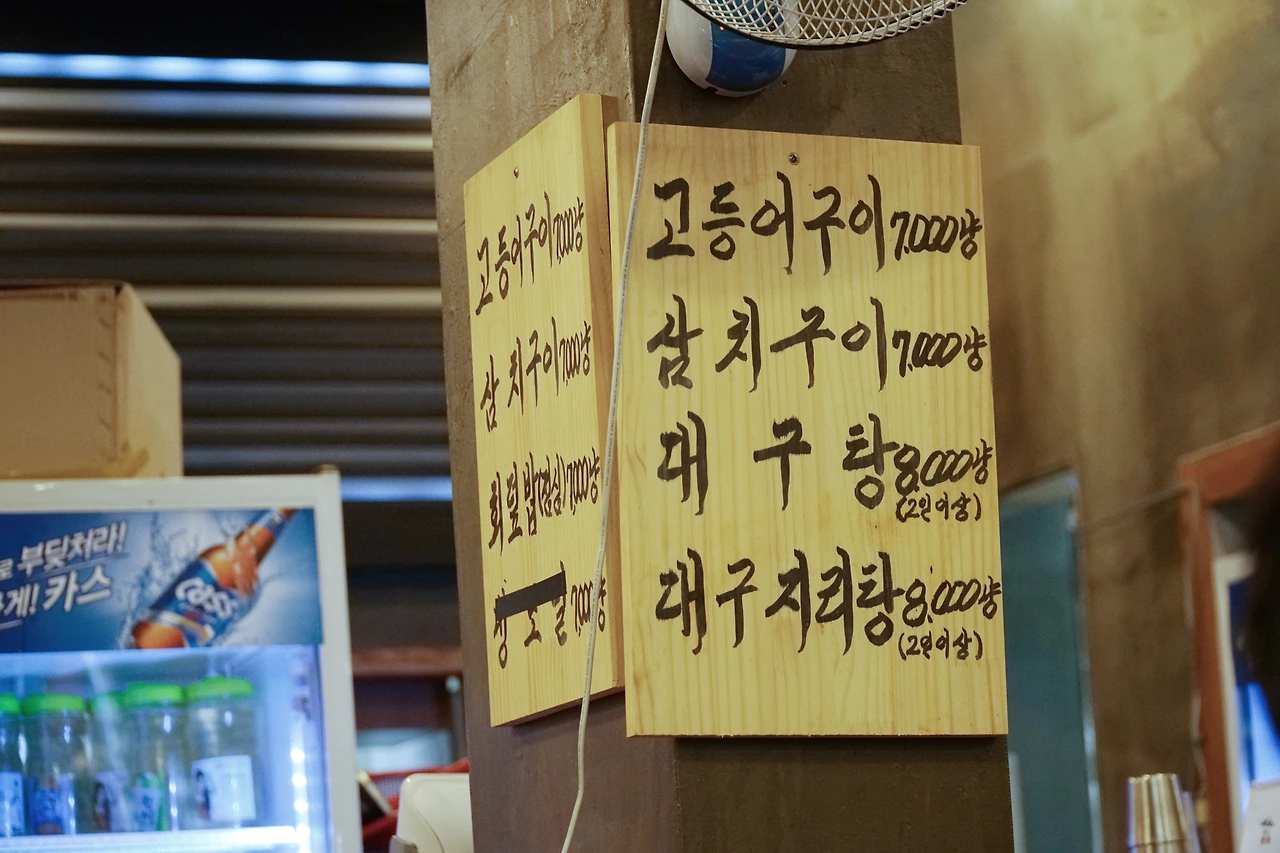 고등어구이 7,000냥
삼치구이 7,000냥
회덮밥(점심) 7,000냥
7,000냥
고등어구이 7.000냥
삼치구이 7.000냥
대구탕 8.000냥
(2인이상)
대구지리탕 8.000냥
(2인이상)
로 부딪쳐라!
하게! 카스
Cass